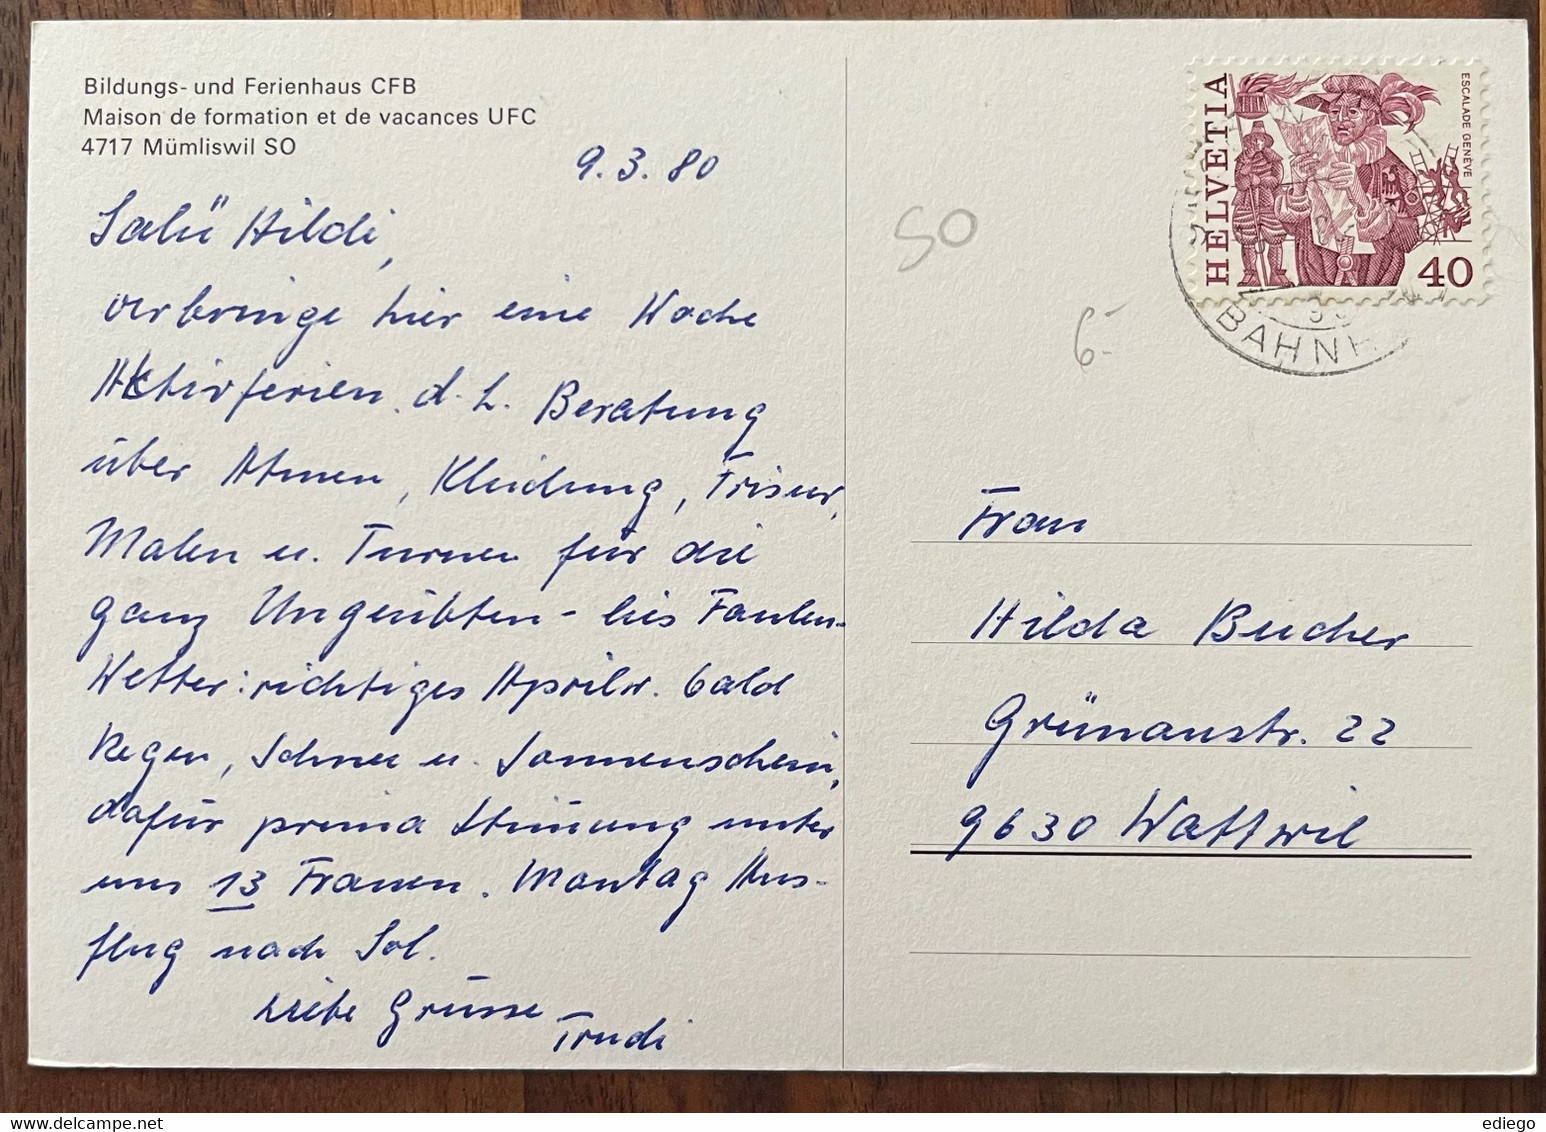 Bildungs- und Ferienhaus CFB
Maison de formation et de vacances UFC
4717 Mümliswil SO
9.3.80
Salü Hildi,
verbringe hier eine Woche
Aktivferien d.h. Beratung
über Atmen, Kleidung, Frisur,
Malen u. Turnen für die
ganz Ungeübten - bis Faulen.
Wetter: richtiges Aprilw. bald
Regen, Schnee u. Sonnenschein,
dafür prima Stimung unter
uns 13 Frauen. Montag Aus-
flug nach Sol.
Liebe Grüsse
Trudi
SO
6.-
HELVETIA
ESCALADE GENÈVE
40
BAHNH
Frau
Hilda Bucher
Grünaustr. 22
9630 Wattwil
www.delcampe.net
edlego